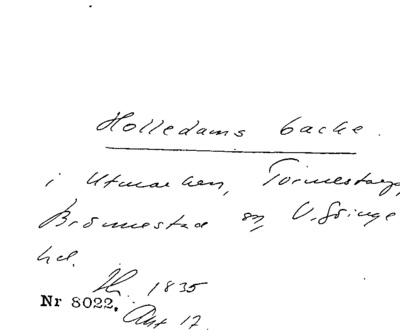 Holledams backe.
i Utmarken, Tormestorp,
Brönnestad sn, V. Göinge
hd.
1835
Nr 8022. Akt 17.